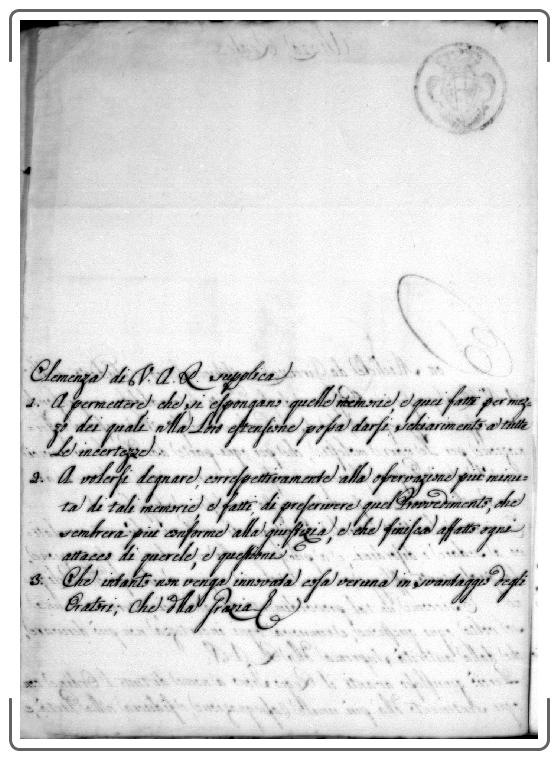 Clemenza di V. A. R. supplica
1. A permettere che si espongano quelle memorie, e quei fatti per mez-
zo dei quali nella loro estensione possa darsi schiarimento a tutte
le incertezze
2. A volersi degnare correspettivamente alla osservazione più minu-
ta di tali memorie, e fatti, di prescrivere quel Provvedimento, che
sembrerà più conforme alla giustizia, e che finisca affatto ogni
attacco di querele, e questioni
3. Che intanto non venga innovata cosa veruna in svantaggio degli
Oratori; Che della Grazia